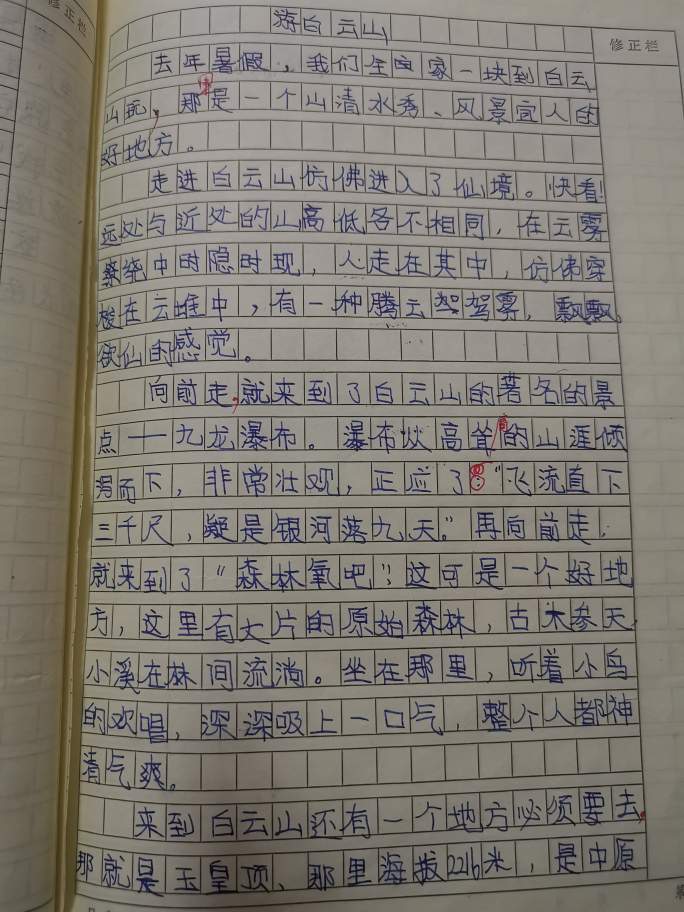 修正栏
修正栏
游白云山
去年暑假，我们全家一块到白云
山玩，那是一个山清水秀、风景宜人的
好地方。
走进白云山仿佛进入了仙境。快看！
远处与近处的山高低各不相同，在云雾
缭绕中时隐时现，人走在其中，仿佛穿
梭在云堆中，有一种腾云驾雾，飘飘
欲仙的感觉。
向前走，就来到了白云山的著名的景
点——九龙瀑布。瀑布从高耸的山涯倾
泻而下，非常壮观，正应了：“飞流直下
三千尺，疑是银河落九天。”再向前走，
就来到了“森林氧吧”，这可是一个好地
方，这里有大片的原始森林，古木参天，
小溪在林间流淌。坐在那里，听着小鸟
的欢唱，深深吸上一口气，整个人都神
清气爽。
来到白云山还有一个地方必须要去，
那就是玉皇顶、那里海拔2216米，是中原